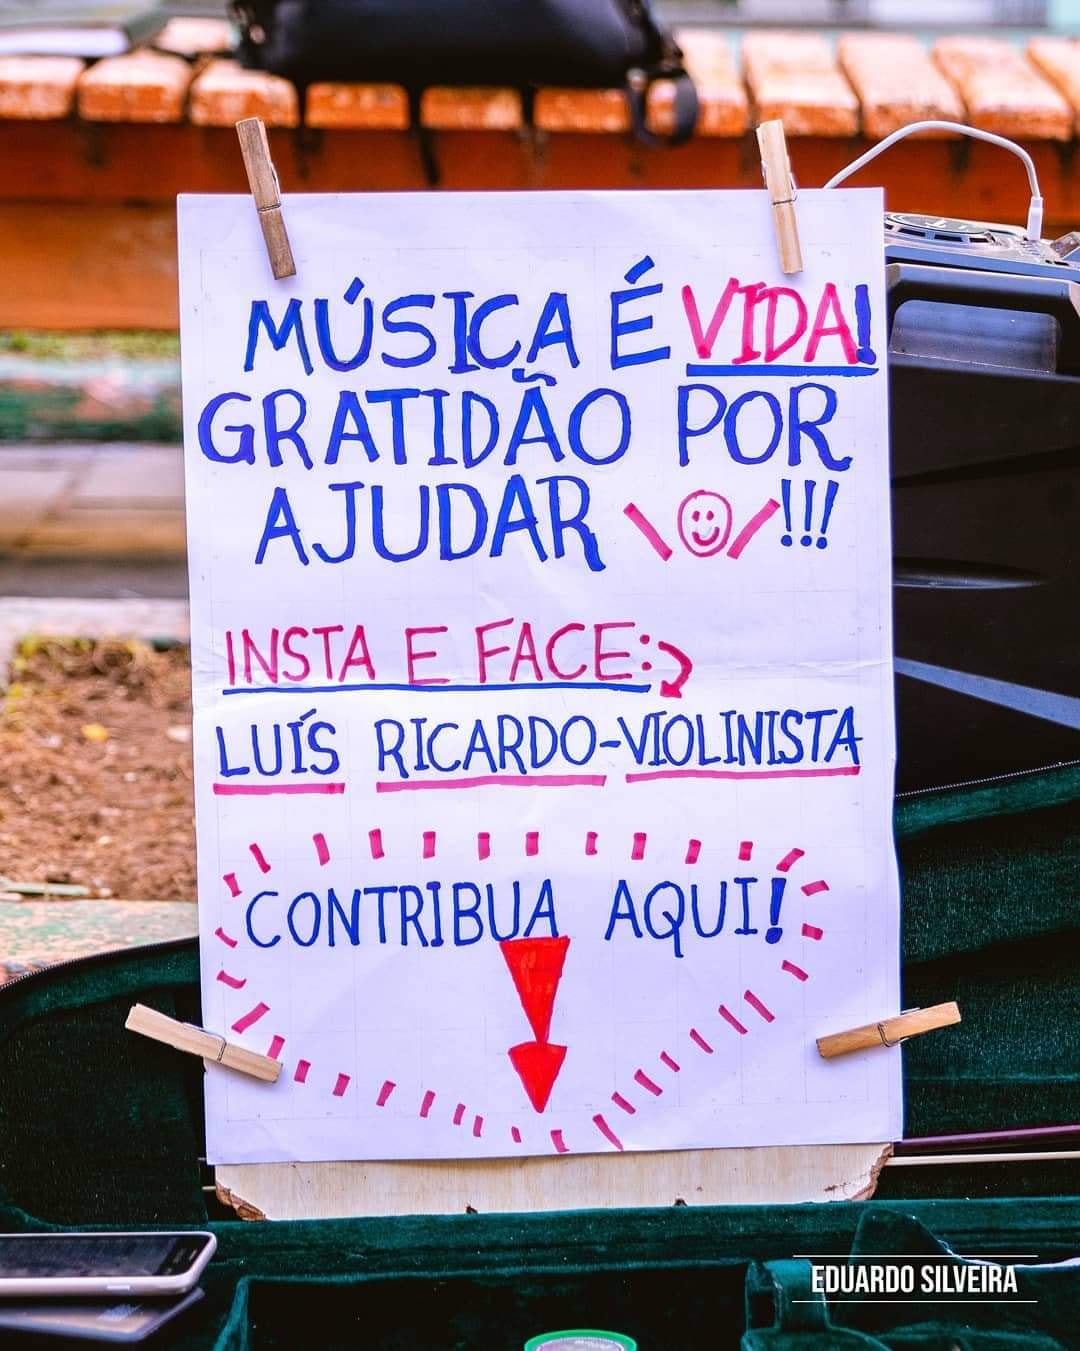 MÚSICA É VIDA!
GRATIDÃO POR
AJUDAR \☺/!!!
INSTA E FACE:
LUÍS RICARDO-VIOLINISTA
CONTRIBUA AQUI!
EDUARDO SILVEIRA